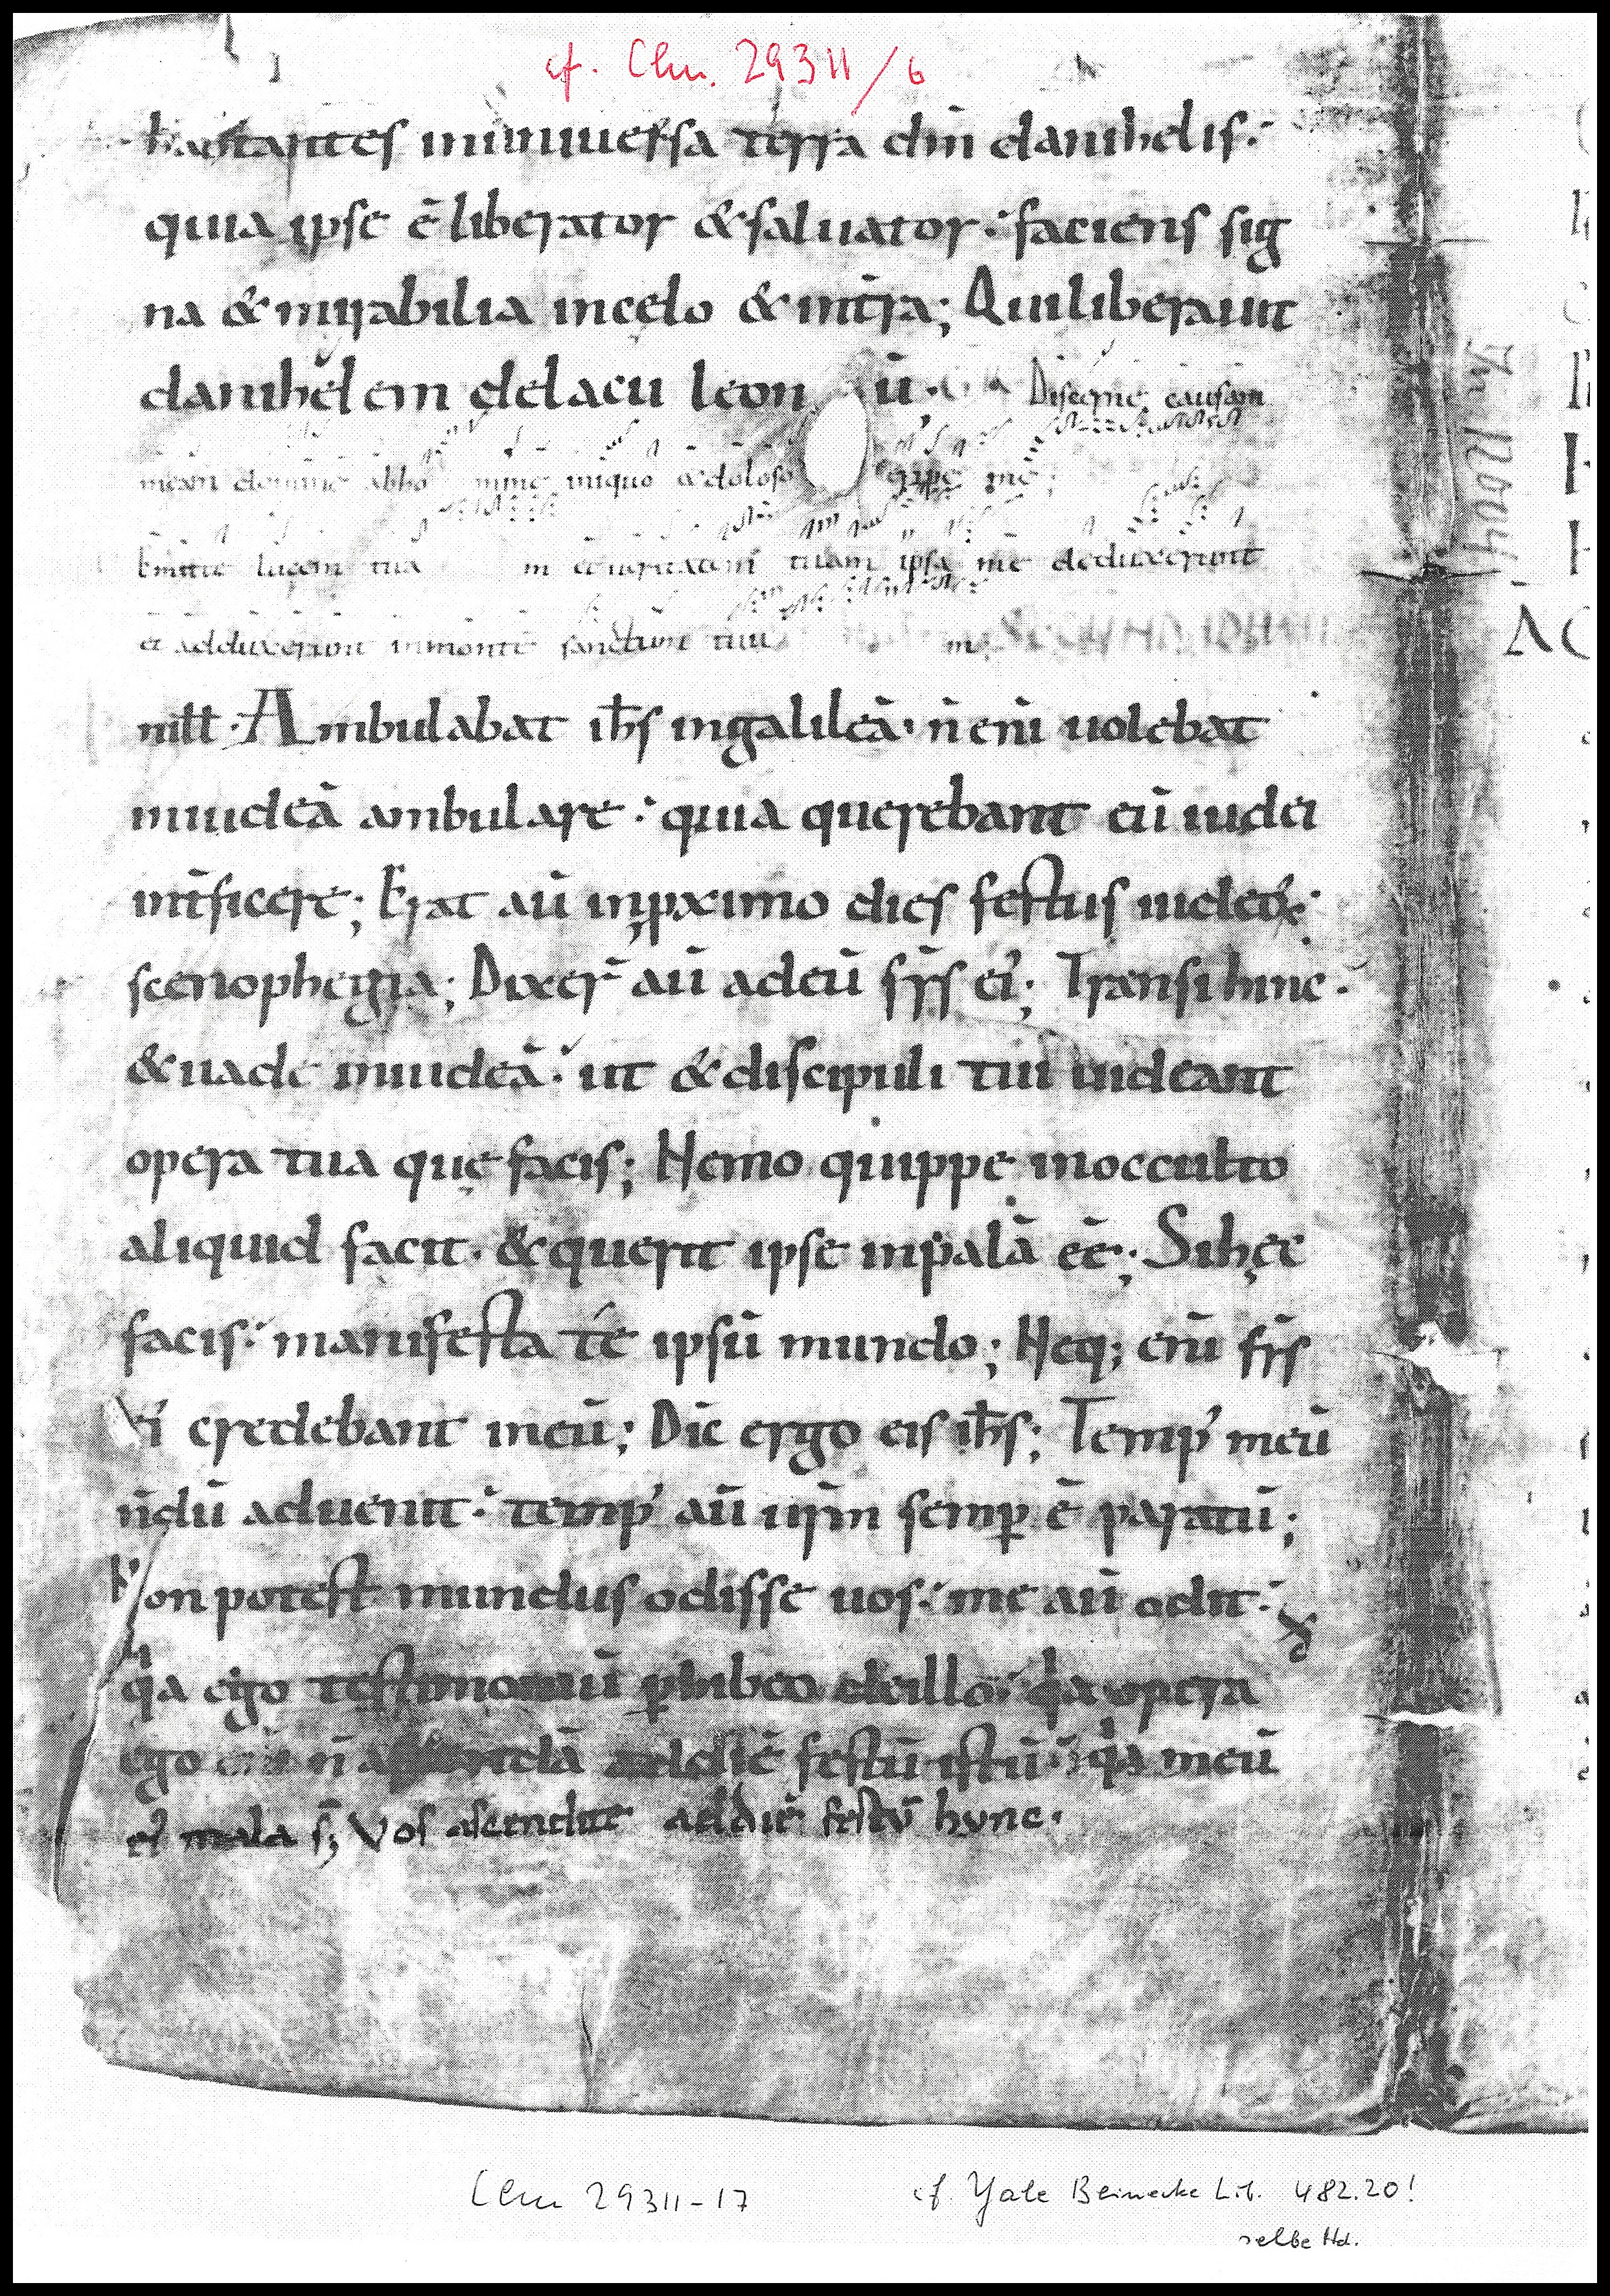 cf. Clm. 29311/6
habitantes inuniuersa terra dm̄ danihelis.
quia ipse ē liberator & saluator. faciens sig
na & mirabilia incęlo & intr̄a; Qui liberauit
danihelem delacu leon ū. Discerne causam
meam domine abho mine iniquo & doloso eripe me;
Emitte lucem tua m et ueritatem tuam ipsa me deduxerunt
et adduxerunt inmonte sanctum tuu m; SECUND IOHAN
In illt. Ambulabat ih̄s ingalileā. n̄ enī uolebat
iniudeā ambulare. quia querebant eū iudei
int̄ficere; Erat aū inꝓximo dies festus iudeoꝝ.
scenophegia; Dixer̄ aū adeū fr̄s ei'; Transi hinc.
& uade iniudeā. ut & discipuli tui uideant
opera tua quę facis; Nemo quippe inocculto
aliquid facit. & querit ipse inpalā eē; Si hęc
facis. manifesta te ipsū mundo; Neq; enī fr̄s
ei' credebant ineū; Dic̄ ergo eis ih̄s; Temp' meū
n̄dū aduenit. temp' aū ur̄m semꝑ ē paratū;
Non potest mundus odisse uos. me aū odit.
qa ego testimoniū ꝑhibeo deillo. qa opera
ei' mala s̄; Vos ascendite addiē festū hunc.
ego n̄ ascendā addiē festū istū. qa meū
Clm 29311-17
cf. Yale Beinecke Lib. 482.20!
selbe Hd.